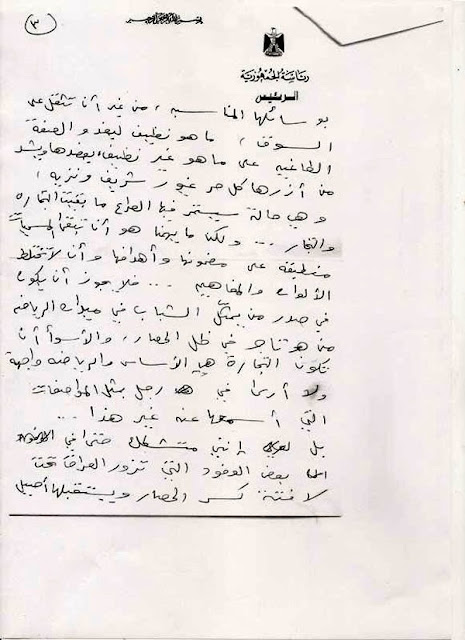 (٣)
بسم الله الرحمن الرحيم
رئاسة الجمهورية
الرئيس
بوسائلها المناسبه، من غير أن تثقل على
السوق، ما هو نظيف ليغدو الصفقة
الطاغيه على ما هو غير نظيف، يعضدها ويشد
من أزرها كل حر غيور شريف ونزيه،
وهي حالة يستمر فيها الصراع ما بقيت التجاره
والتجار ... ولكن ما يهمنا هو أن تبقى المسميات
منطبقة على مضمونها وأهدافها وأن لا تختلط
الألوان والمفاهيم ... فلا يجوز أن يكون
في صدر من يمثل الشباب في ميدان الرياضه
من هو تاجر في ظل الحصار، والأسوأ أن
تكون التجارة هي الأساس والرياضه واجهة
ولا أرى في رجل بمثل المواصفات
التي أسمعها عنه غير هذا ...
بل إنني متشكك حتى في
بعض الوفود التي تزور العراق تحت
لافتة كسر الحصار ويستقبلها أصيل